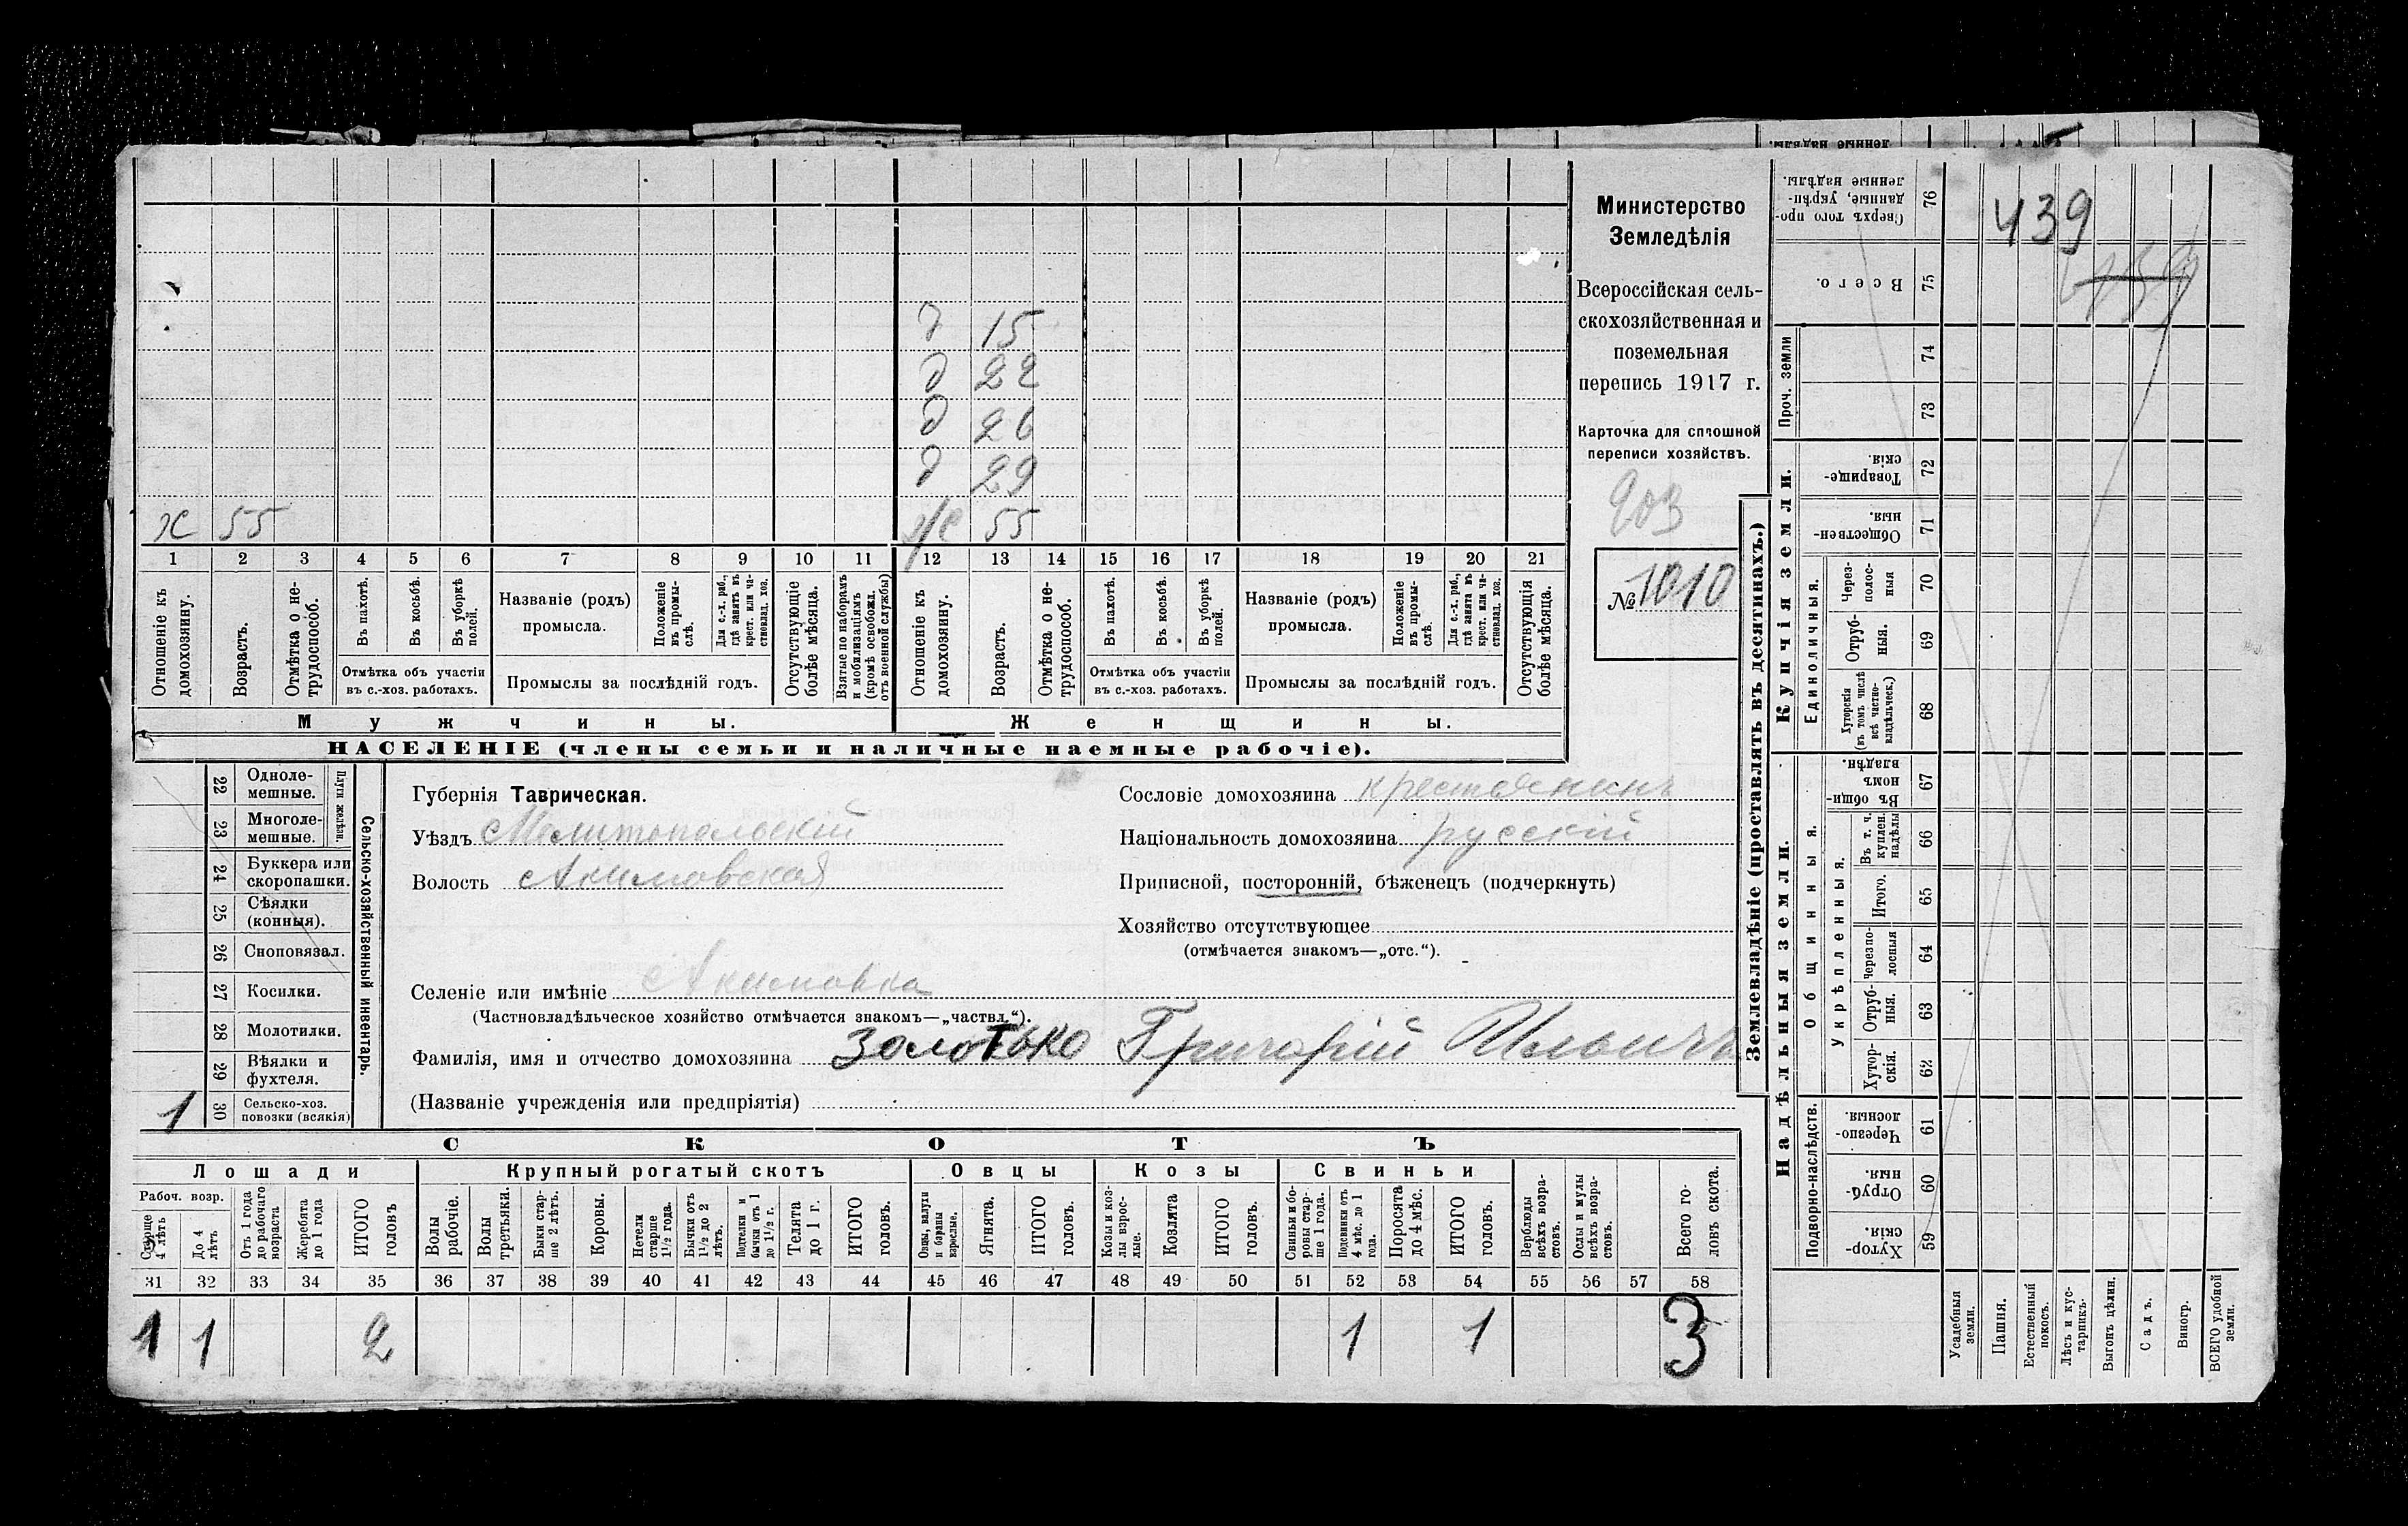 х 55
д 15
д 22
д 26
д 29
ж 55
1 2 3 4 5 6 7 8 9 10 11 12 13 14 15 16 17 18 19 20 21
Отношеніе къ домохозяину.
Возрастъ.
Отмѣтка о нетрудоспособ.
Въ пахотѣ.
Въ косьбѣ.
Въ уборкѣ полей.
Отмѣтка объ участіи въ с.-хоз. работахъ.
Названіе (родъ) промысла.
Положеніе въ промыслѣ.
Для с.-х. раб., гдѣ занятъ въ крест. или частновлад. хоз.
Промыслы за послѣдній годъ.
Отсутствующіе болѣе мѣсяца.
Взятые по наборамъ и мобилизаціямъ (кромѣ освобожд. отъ военной службы)
Отношеніе къ домохозяину.
Возрастъ.
Отмѣтка о нетрудоспособ.
Въ пахотѣ.
Въ косьбѣ.
Въ уборкѣ полей.
Отмѣтка объ участіи въ с.-хоз. работахъ.
Названіе (родъ) промысла.
Положеніе въ промыслѣ.
Для с.-х. раб., гдѣ занята въ крест. или частновлад. хоз.
Промыслы за послѣдній годъ.
Отсутствующія болѣе мѣсяца.
Мужчины. Женщины.
НАСЕЛЕНІЕ (члены семьи и наличные наемные рабочіе).
Министерство
Земледѣлія
Всероссійская сель-
скохозяйственная и
поземельная
перепись 1917 г.
Карточка для сплошной
переписи хозяйствъ.
903
№ 1010
22 Одноле-
мешные.
23 Многоле-
мешные.
Плуги желѣзн.
24 Буккера или
скоропашки.
25 Сѣялки
(конныя).
26 Сноповязал.
27 Косилки.
28 Молотилки.
29 Вѣялки и
фухтеля.
1 30 Сельско-хоз.
повозки (всякія)
Сельско-хозяйственный инвентарь.
Губернія Таврическая.
Уѣздъ Мелитопольскій
Волость Акимовская
Селеніе или имѣніе Акимовка
(Частновладѣльческое хозяйство отмѣчается знакомъ—„частвл.“).
Фамилія, имя и отчество домохозяина Золотько Григорій Ильичъ
(Названіе учрежденія или предпріятія)
Сословіе домохозяина крестьянинъ
Національность домохозяина русскій
Приписной, посторонній, бѣженецъ (подчеркнуть)
Хозяйство отсутствующее
(отмѣчается знакомъ—„отс.“).
СКОТЪ
Лошади Крупный рогатый скотъ Овцы Козы Свиньи
Рабоч. возр.
Старше 4 лѣтъ
До 4 лѣтъ
Отъ 1 года до рабочаго возраста
Жеребята до 1 года
ИТОГО головъ
Волы рабочіе.
Волы третьяки.
Быки старше 2 лѣтъ.
Коровы.
Нетели старше 1½ года.
Бычки отъ 1½ до 2 лѣтъ.
Подтелки и бычки отъ 1 до 1½ г.
Телята до 1 г.
ИТОГО головъ.
Овцы, валухи и бараны взрослые.
Ягнята.
ИТОГО головъ.
Козы и козлы взрослые.
Козлята
ИТОГО головъ.
Свиньи и боровы старше 1 года.
Подсвинки отъ 4 мѣс. до 1 года.
Поросята до 4 мѣс.
ИТОГО головъ.
Верблюды всѣхъ возрастовъ.
Ослы и мулы всѣхъ возрастовъ.
Всего головъ скота.
31 32 33 34 35 36 37 38 39 40 41 42 43 44 45 46 47 48 49 50 51 52 53 54 55 56 57 58
1 1 2 1 1 3
Землевладѣніе (проставлять въ десятинахъ.)
Купчія земли.
Надѣльныя земли.
Сверхъ того проданные, укрѣпленные надѣлы. 76
439
Всего. 75
Проч. земли
74
73
Товарищескія. 72
Общественныя. 71
Единоличныя.
Черезполосныя 70
Отрубныя. 69
Хуторскія (въ томъ числѣ всѣ частновладѣльческ.) 68
Общинныя.
Въ общинномъ владѣн. 67
Укрѣпленныя.
Въ т. ч. куплен. надѣлы 66
Итого. 65
Черезполосныя 64
Отрубныя. 63
Хуторскія. 62
Подворно-наслѣдств.
Черезполосныя. 61
Отрубныя. 60
Хуторскія. 59
Усадебныя земли.
Пашня.
Естественный покосъ.
Лѣсъ и кустарникъ.
Выгонъ цѣлин.
Садъ.
Виногр.
ВСЕГО удобной земли.